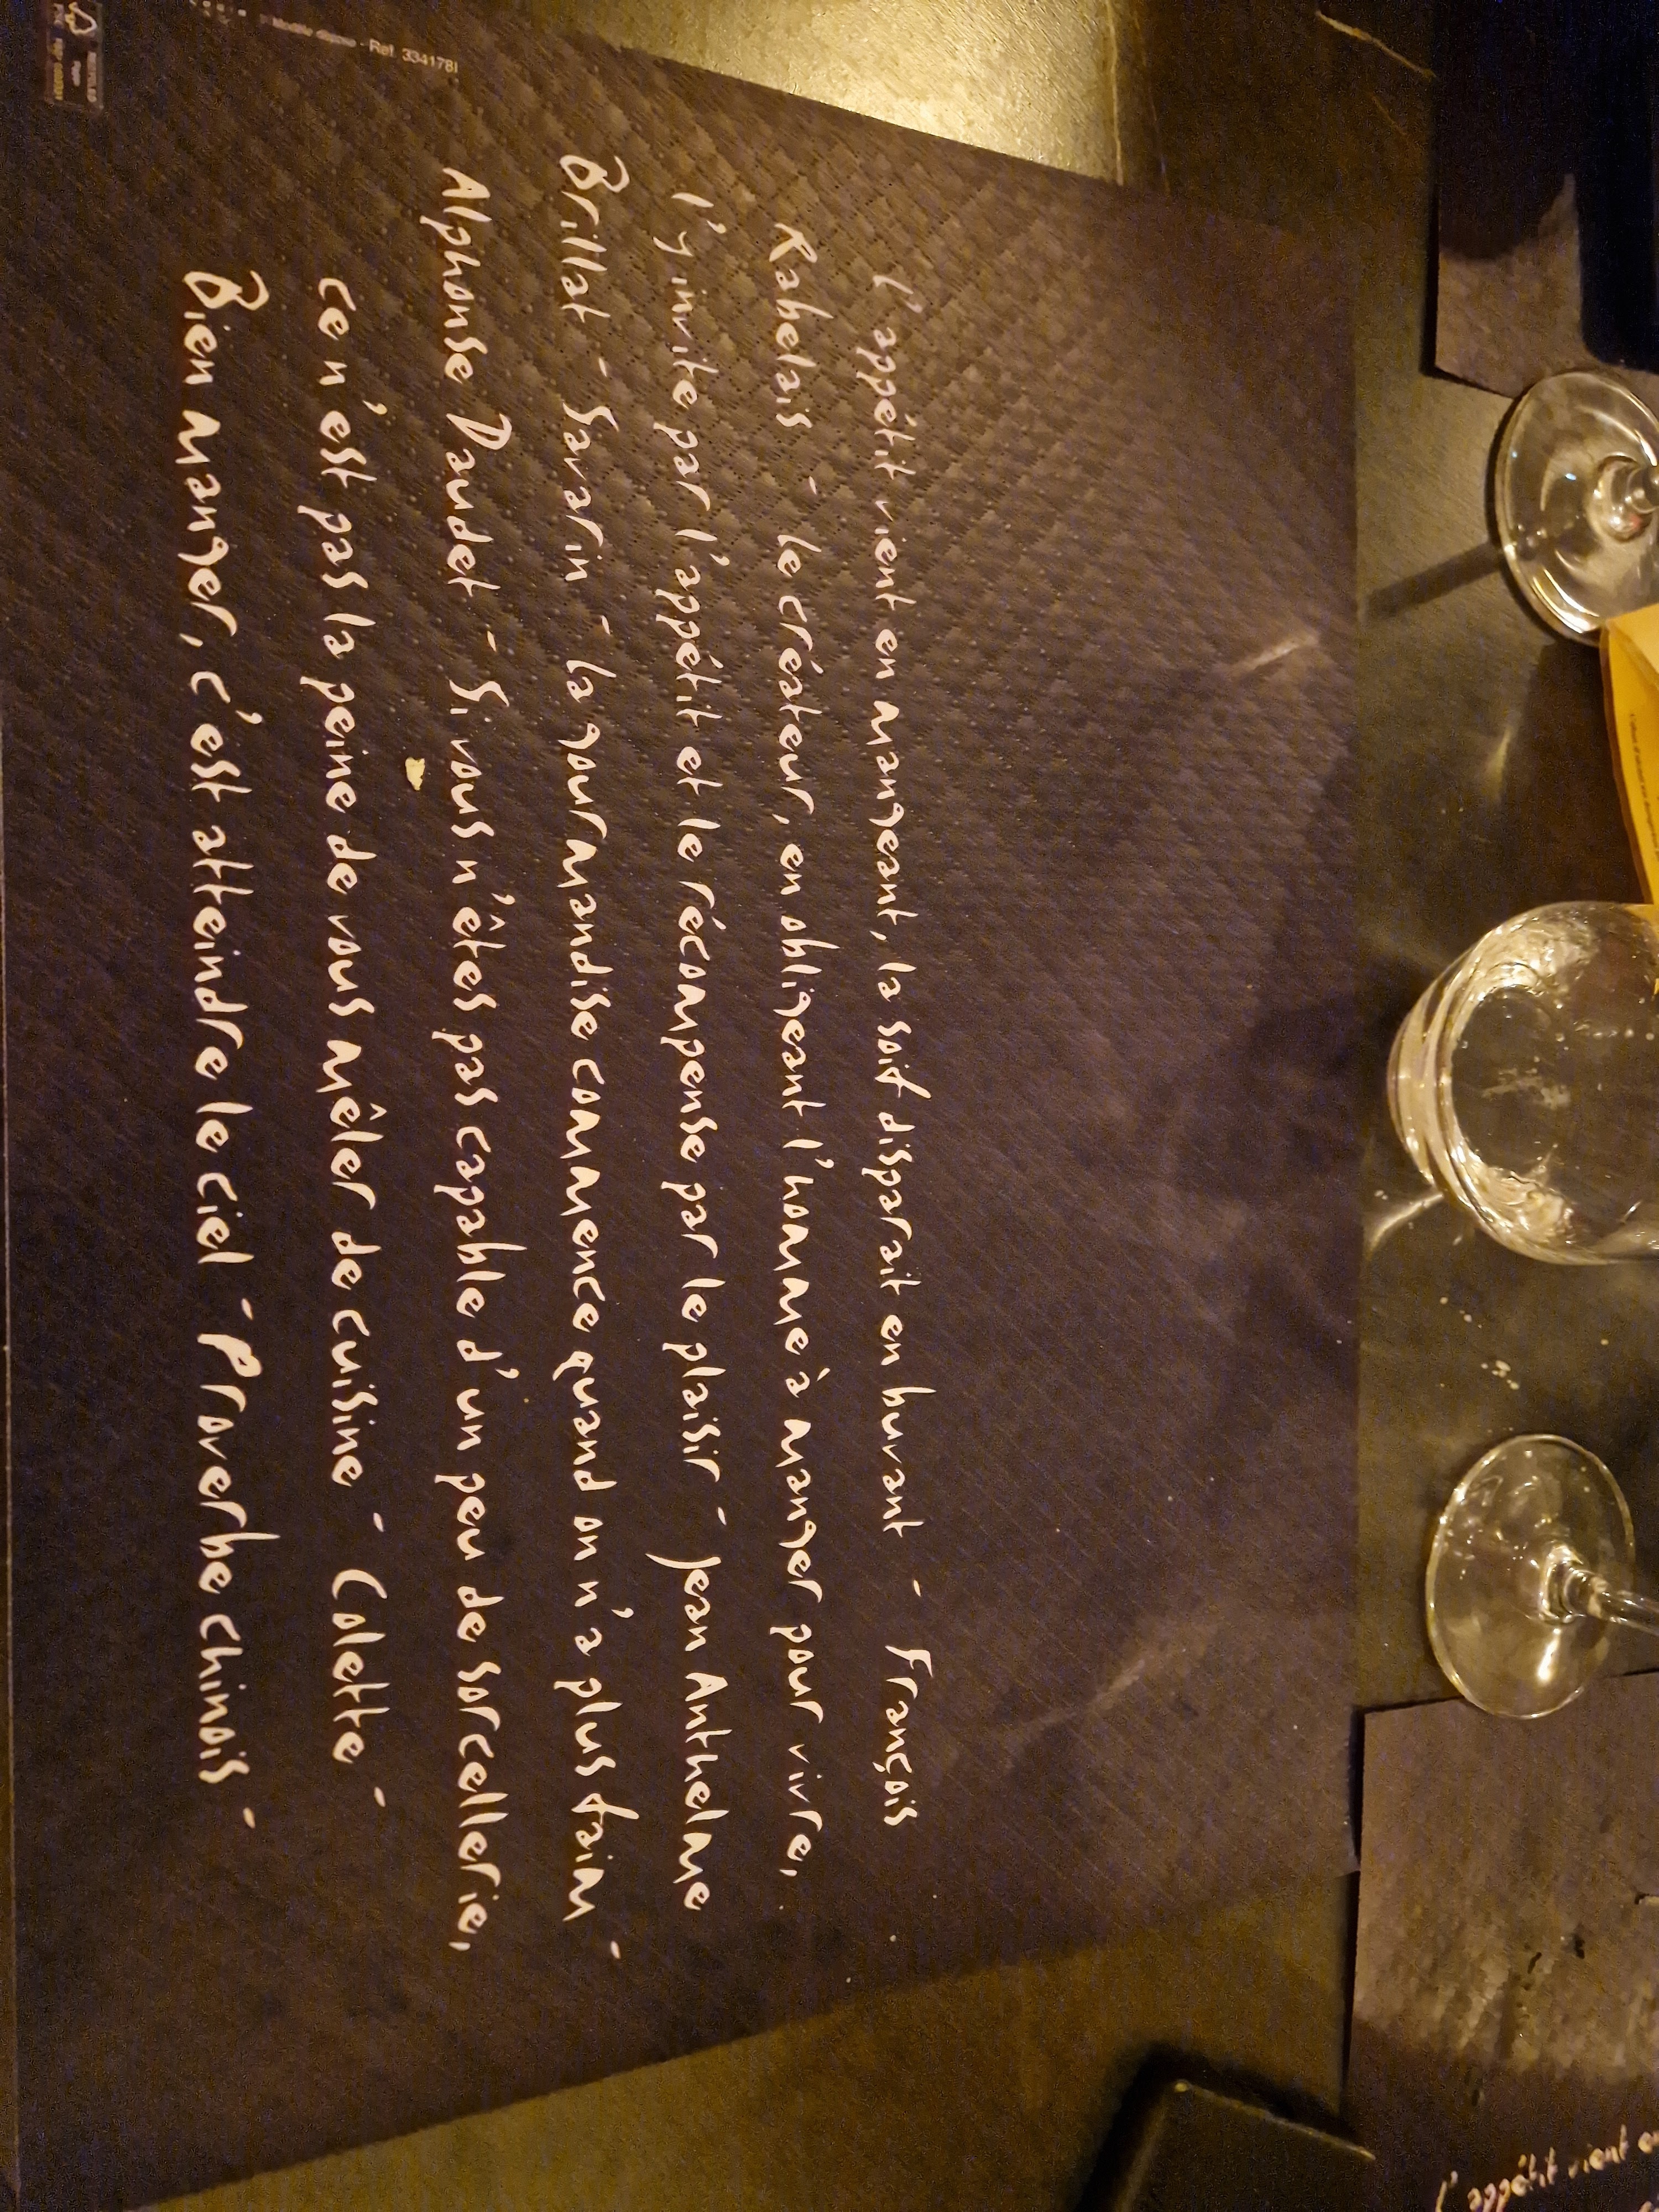 L'appétit vient en mangeant, la soif disparait en buvant - François
Rabelais - Le créateur, en obligeant l'homme à manger pour vivre,
l'y invite par l'appétit et le récompense par le plaisir - Jean Anthelme
Brillat - Savarin - La gourmandise commence quand on n'a plus faim -
Alphonse Daudet - Si vous n'êtes pas capable d'un peu de sorcellerie,
ce n'est pas la peine de vous mêler de cuisine - Colette -
Bien manger, c'est atteindre le ciel - Proverbe chinois -
Ref. 334178I
L'appétit vient